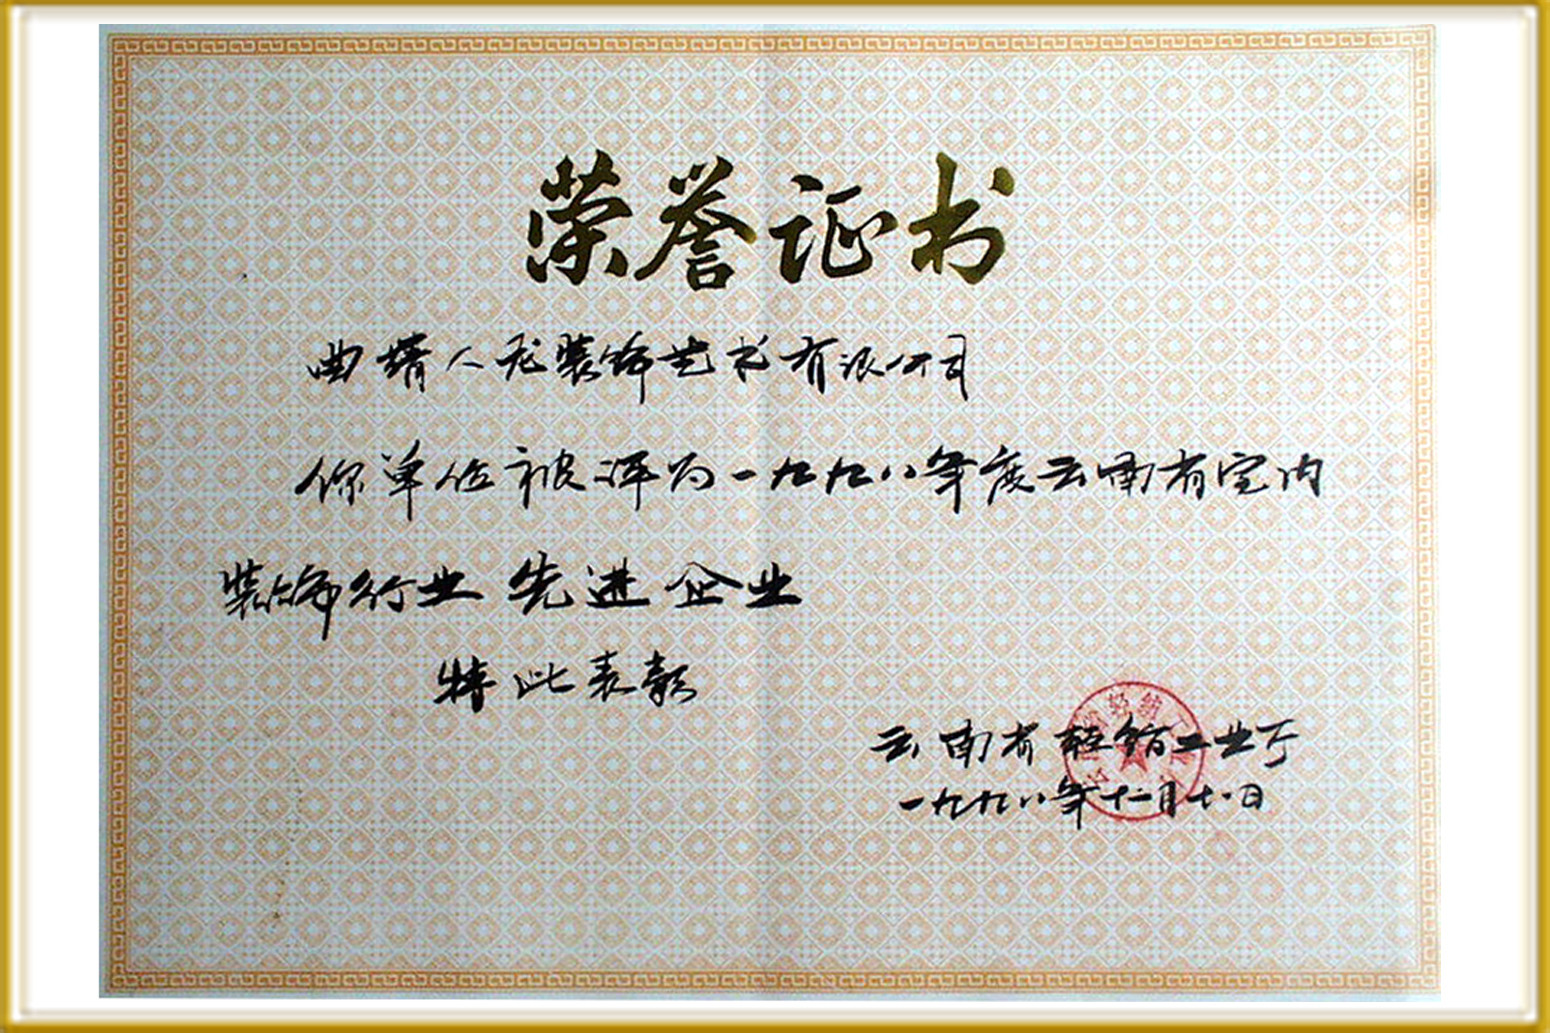 荣誉证书
曲靖人龙装饰艺术有限公司
你单位被评为一九九八年度云南省室内
装饰行业先进企业
特此表彰
云南省轻纺工业厅
一九九八年十二月十八日